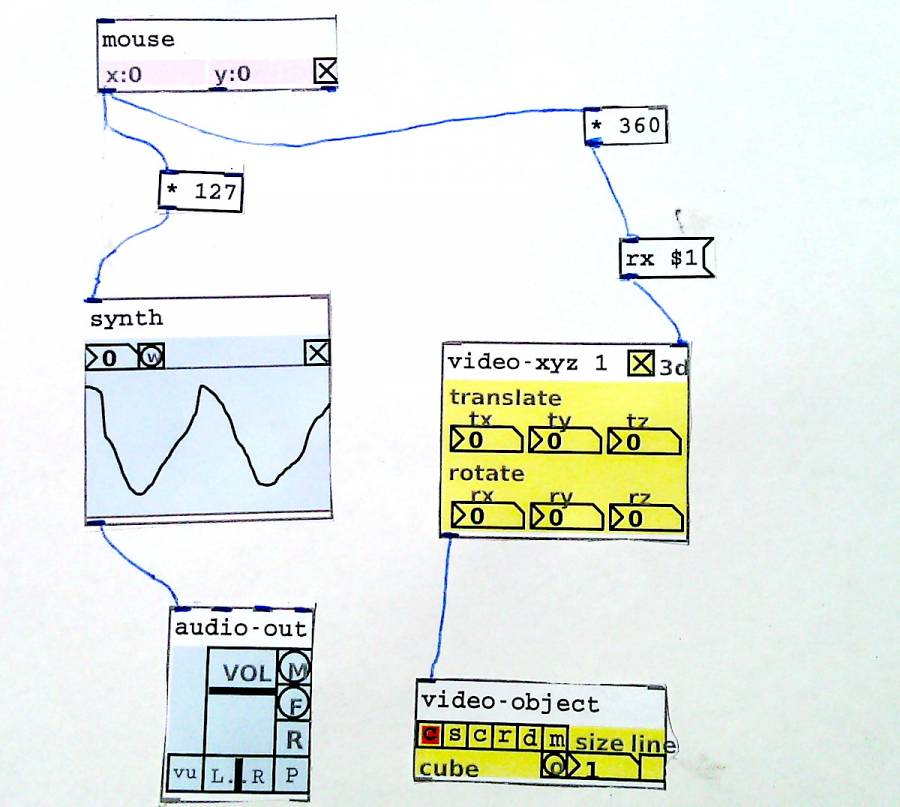 mouse
x:0 y:0
* 360
* 127
rx $1
synth
0 W
video-xyz 1 3d
translate
tx ty tz
0 0 0
rotate
rx ry rz
0 0 0
audio-out
VOL M
F
R
vu L..R P
video-object
c s c r d m size line
cube O 1